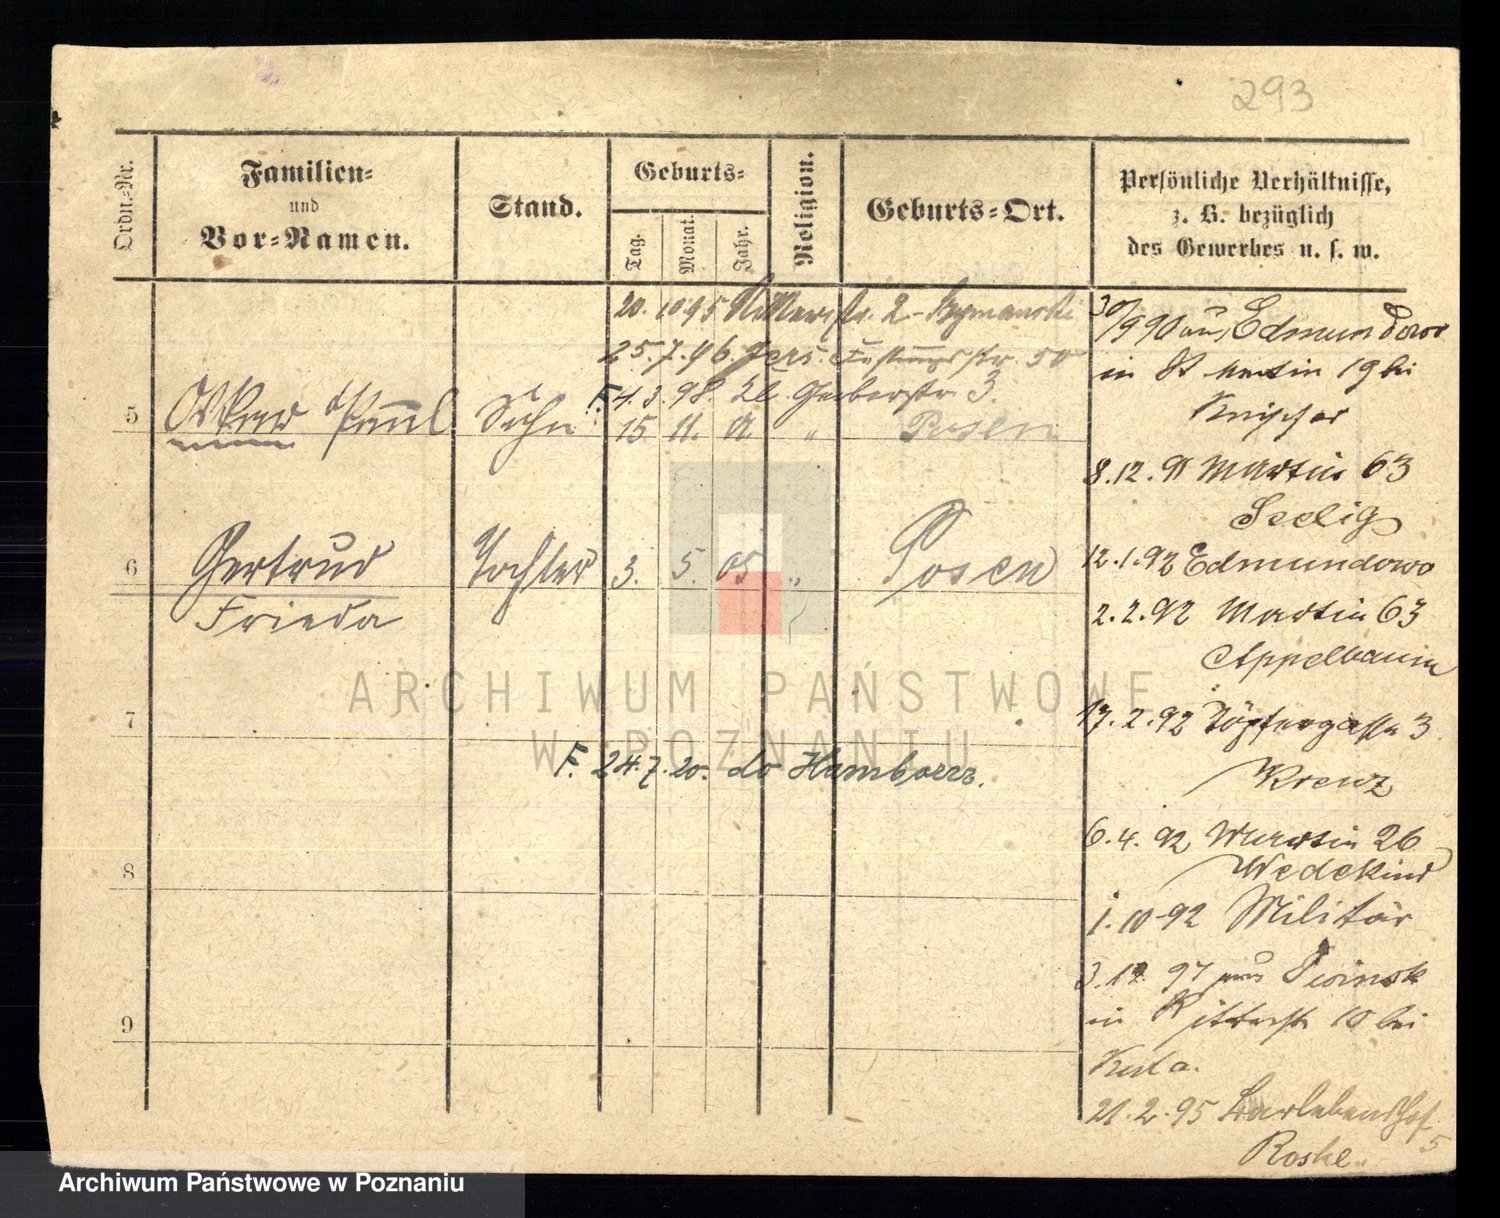 293
Ordn.-Nr.
Familien-
und
Vor-Namen.
Stand.
Geburts-
Tag.
Monat.
Jahr.
Religion.
Geburts-Ort.
Persönliche Verhältnisse,
z. B. bezüglich
des Gewerbes u. s. w.
20. 10 95 Ritterstr. 2 Szymanski
25. 7. 96. Jers. Festungsstr. 50
F. 4. 3. 98. Gerberstr. 3.
5 Oskar Paul Sohn 15 11. " Posen
6 Gertrud Tochter 3. 5. 05 " Posen
Frieda
7
F. 24. 7. 20.
8
9
30/9 90 aus Edmundowo
in St Martin 19 bei
8. 12. 91 Martin 63
Seelig
12. 1. 92 Edmundowo
2. 2. 92 Martin 63
Appelbaum
17. 2. 92 Töpfergasse 3
Krenz
6. 4. 92 Martin 26
Wedekind
1. 10 92 Militär
in Ritterstr 10 bei
21. 2. 95
5
ARCHIWUM PAŃSTWOWE
W POZNANIU
Archiwum Państwowe w Poznaniu